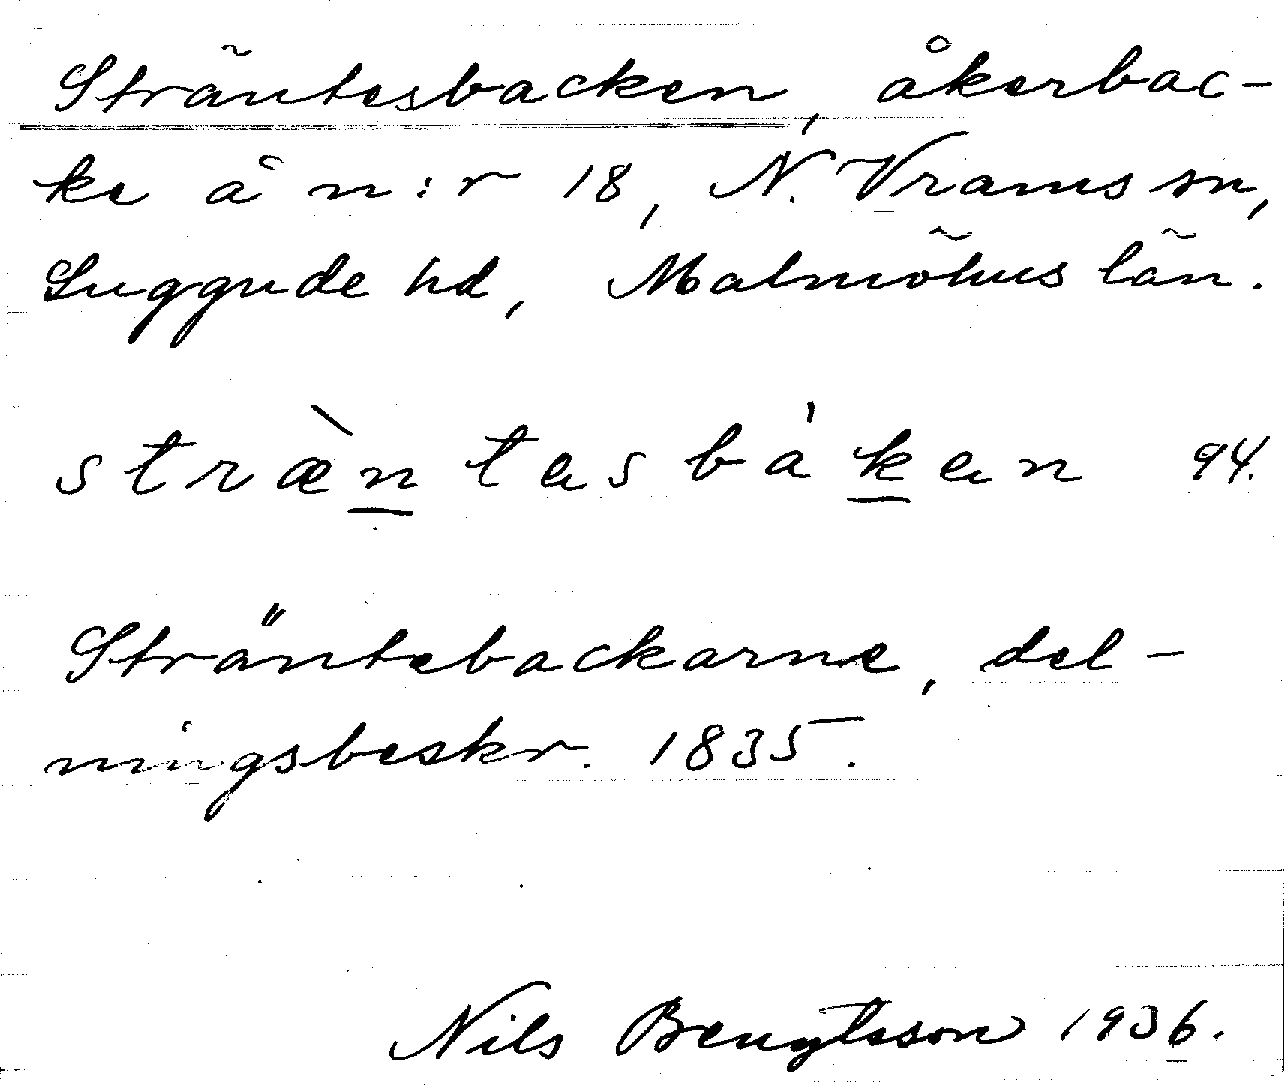 Sträntesbacken, åkerbac-
ke å n:r 18, N. Vrams sn,
Luggude hd, Malmöhus län.
stræ̀ntasbákan 94.
Sträntebackarne, del-
ningsbeskr. 1835.
Nils Bengtsson 1936.